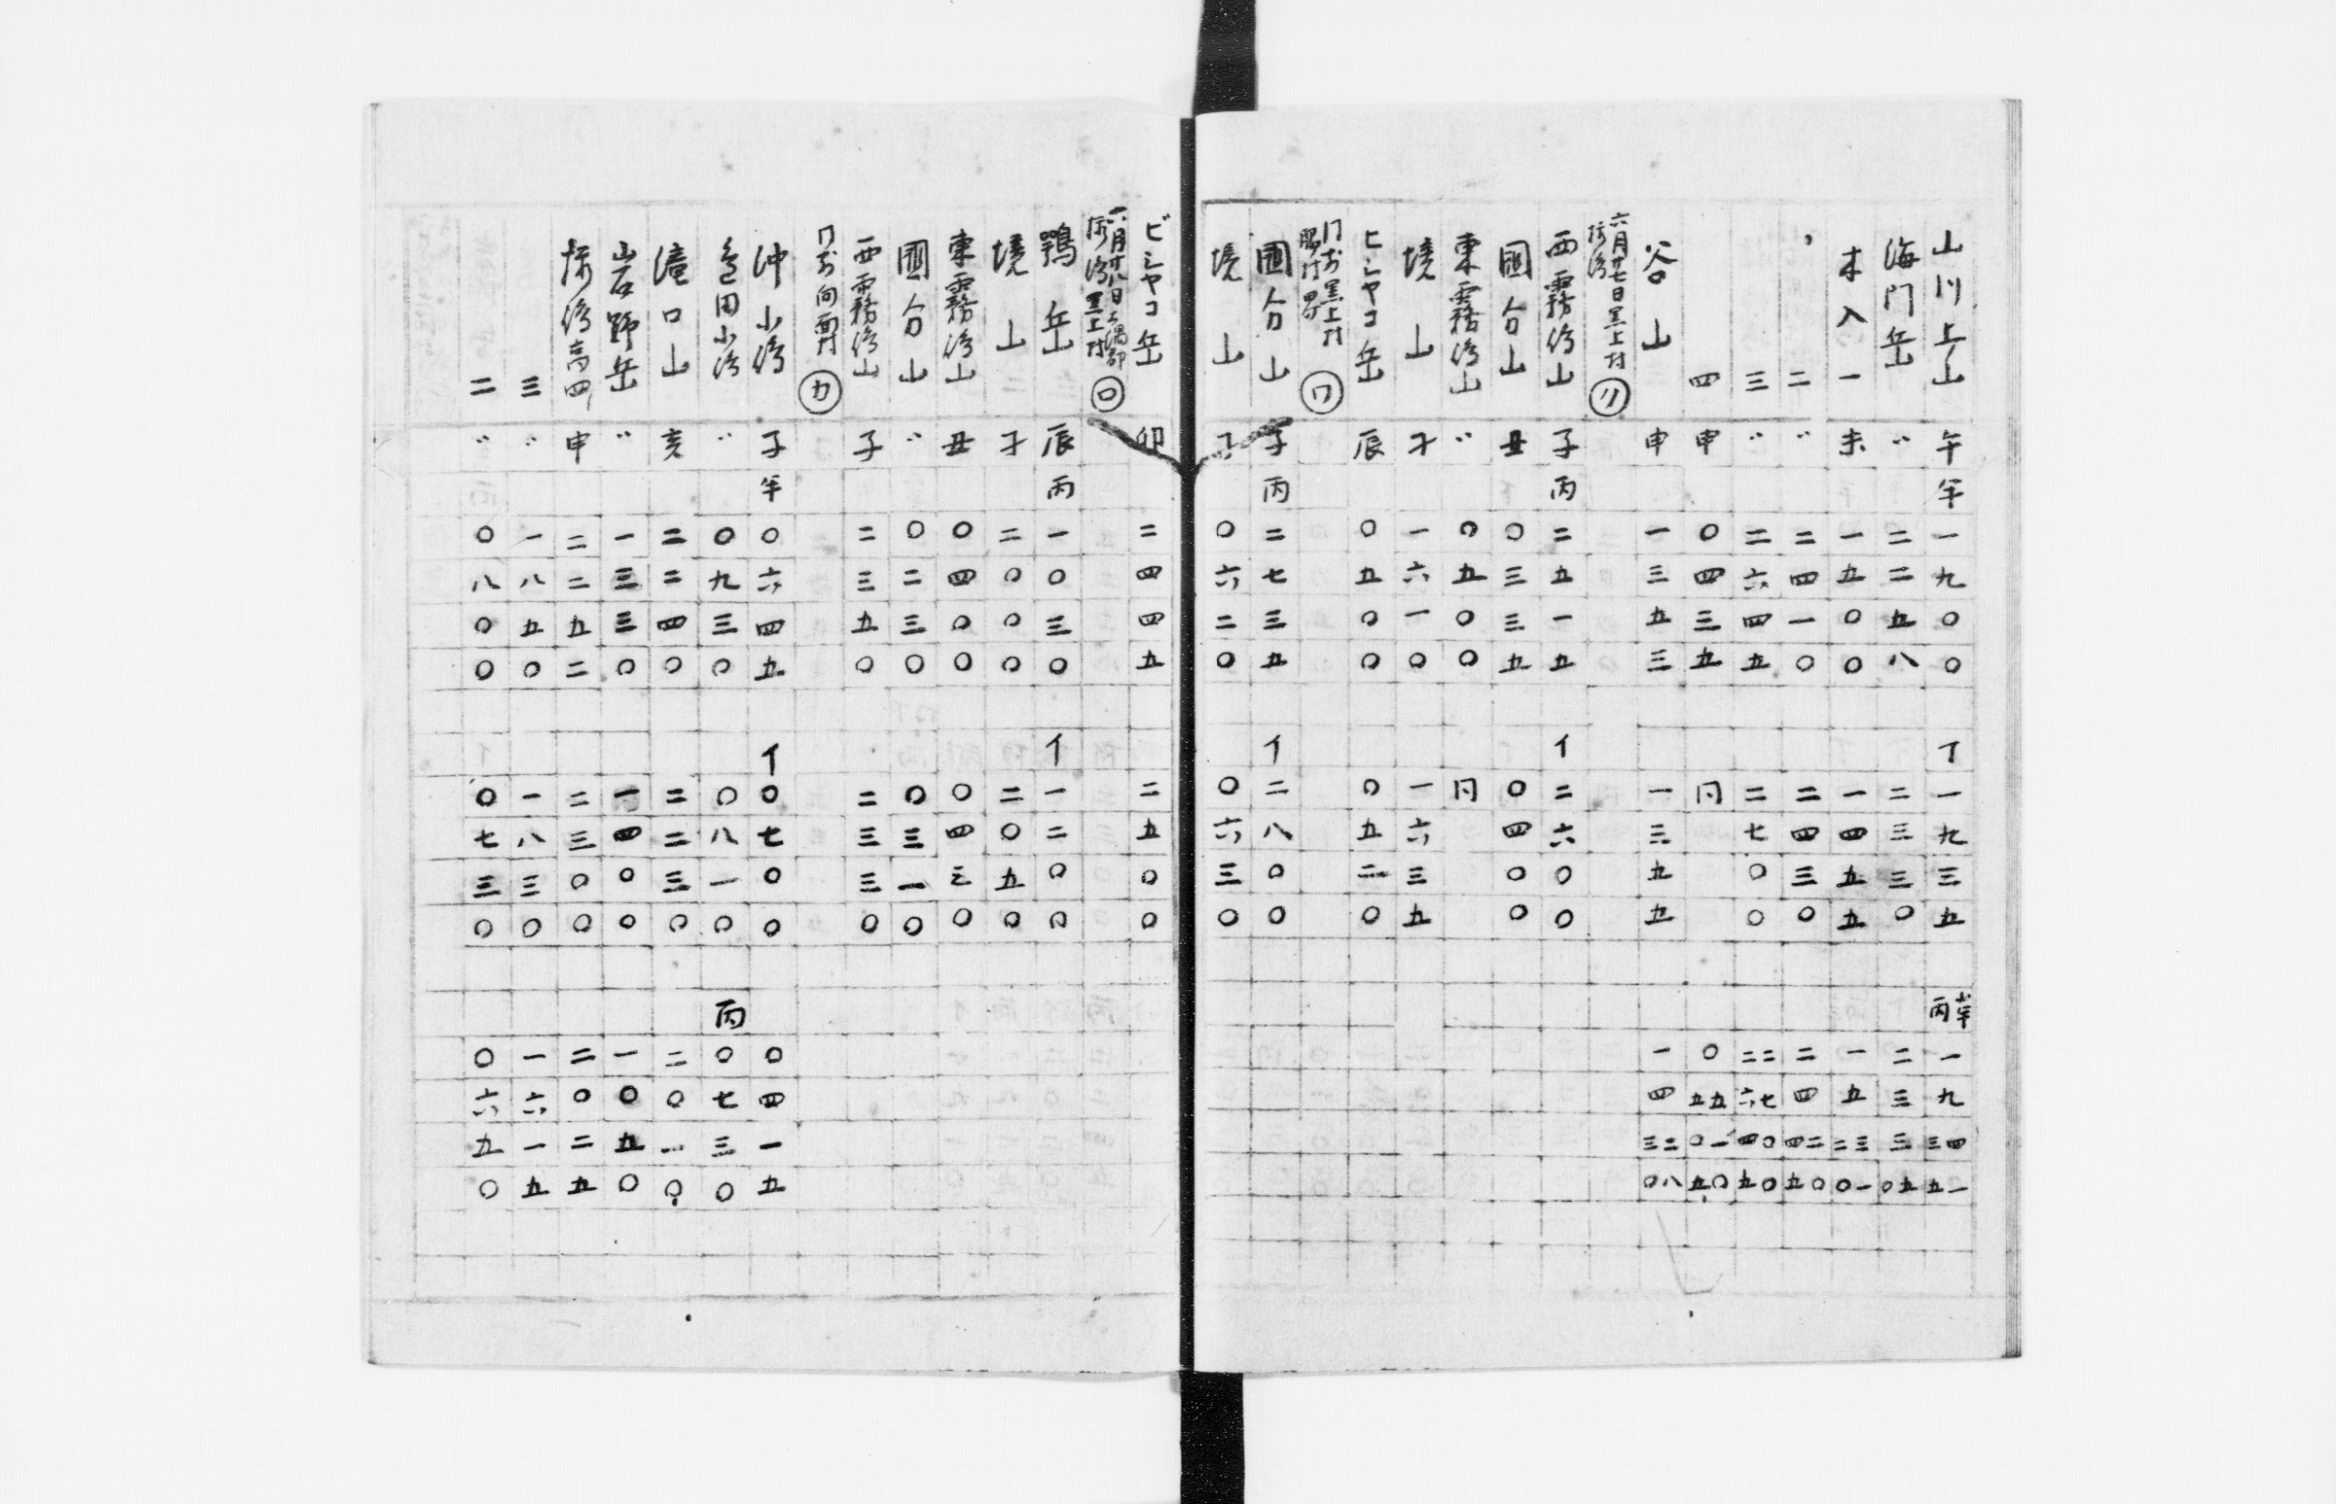 山川上山 午 午 一九〇〇 丁 一九三五 丙 午 一九三五 四一
海門岳 〃 二二五八 二三三〇 二三三〇 五
木入 一 未 一五〇〇 一四五五 一五二〇 三一
〃 二 〃 二四一〇 二四三〇 二四四五 二〇
三 〃 二六四五 二七〇〇 二六四五 二七〇〇
四 申 〇四三五 同 〇五〇五 五一〇
谷山 申 一三五三 一三九五 一四三〇 二八
六月廿七日黒上村 リ
西霧島山 子 丙 二五一五 イ 二六〇〇
国分山 丑 〇三三五 〇四〇〇
東霧島山 〃 〇五〇〇 同
境山 才 一六一〇 一六三五
ヒシヤコ岳 辰 〇五〇〇 〇五二〇
同前黒上村 ワ
国分山 子 丙 二七三五 イ 二八〇〇
境山 子 〇六二〇 〇六三〇
ビシヤコ岳 卯 二四四五 二五〇〇
六月廿八日 黒上村 ロ
鶚岳 辰 丙 一〇三〇 イ 一二〇〇
境山 才 二〇〇〇 二〇五〇
東霧島山 丑 〇四〇〇 〇四三〇
国分山 〃 〇二三〇 〇三一〇
西霧島山 子 二三五〇 二三三〇
同前向面村 カ
沖小島 子 午 〇六四五 イ 〇七〇〇 〇四一五
亀田小島 〃 〇九三〇 〇八一〇 丙 〇七三〇
滝口山 亥 二二四〇 二二三〇 二〇一〇
岩野岳 〃 一三三〇 一四〇〇 一〇五〇
桜島高四 申 二二五二 二三〇〇 二〇二五
三 〃 一八五〇 一八三〇 一六一五
二 〃 〇八〇〇 〇七三〇 〇六五〇